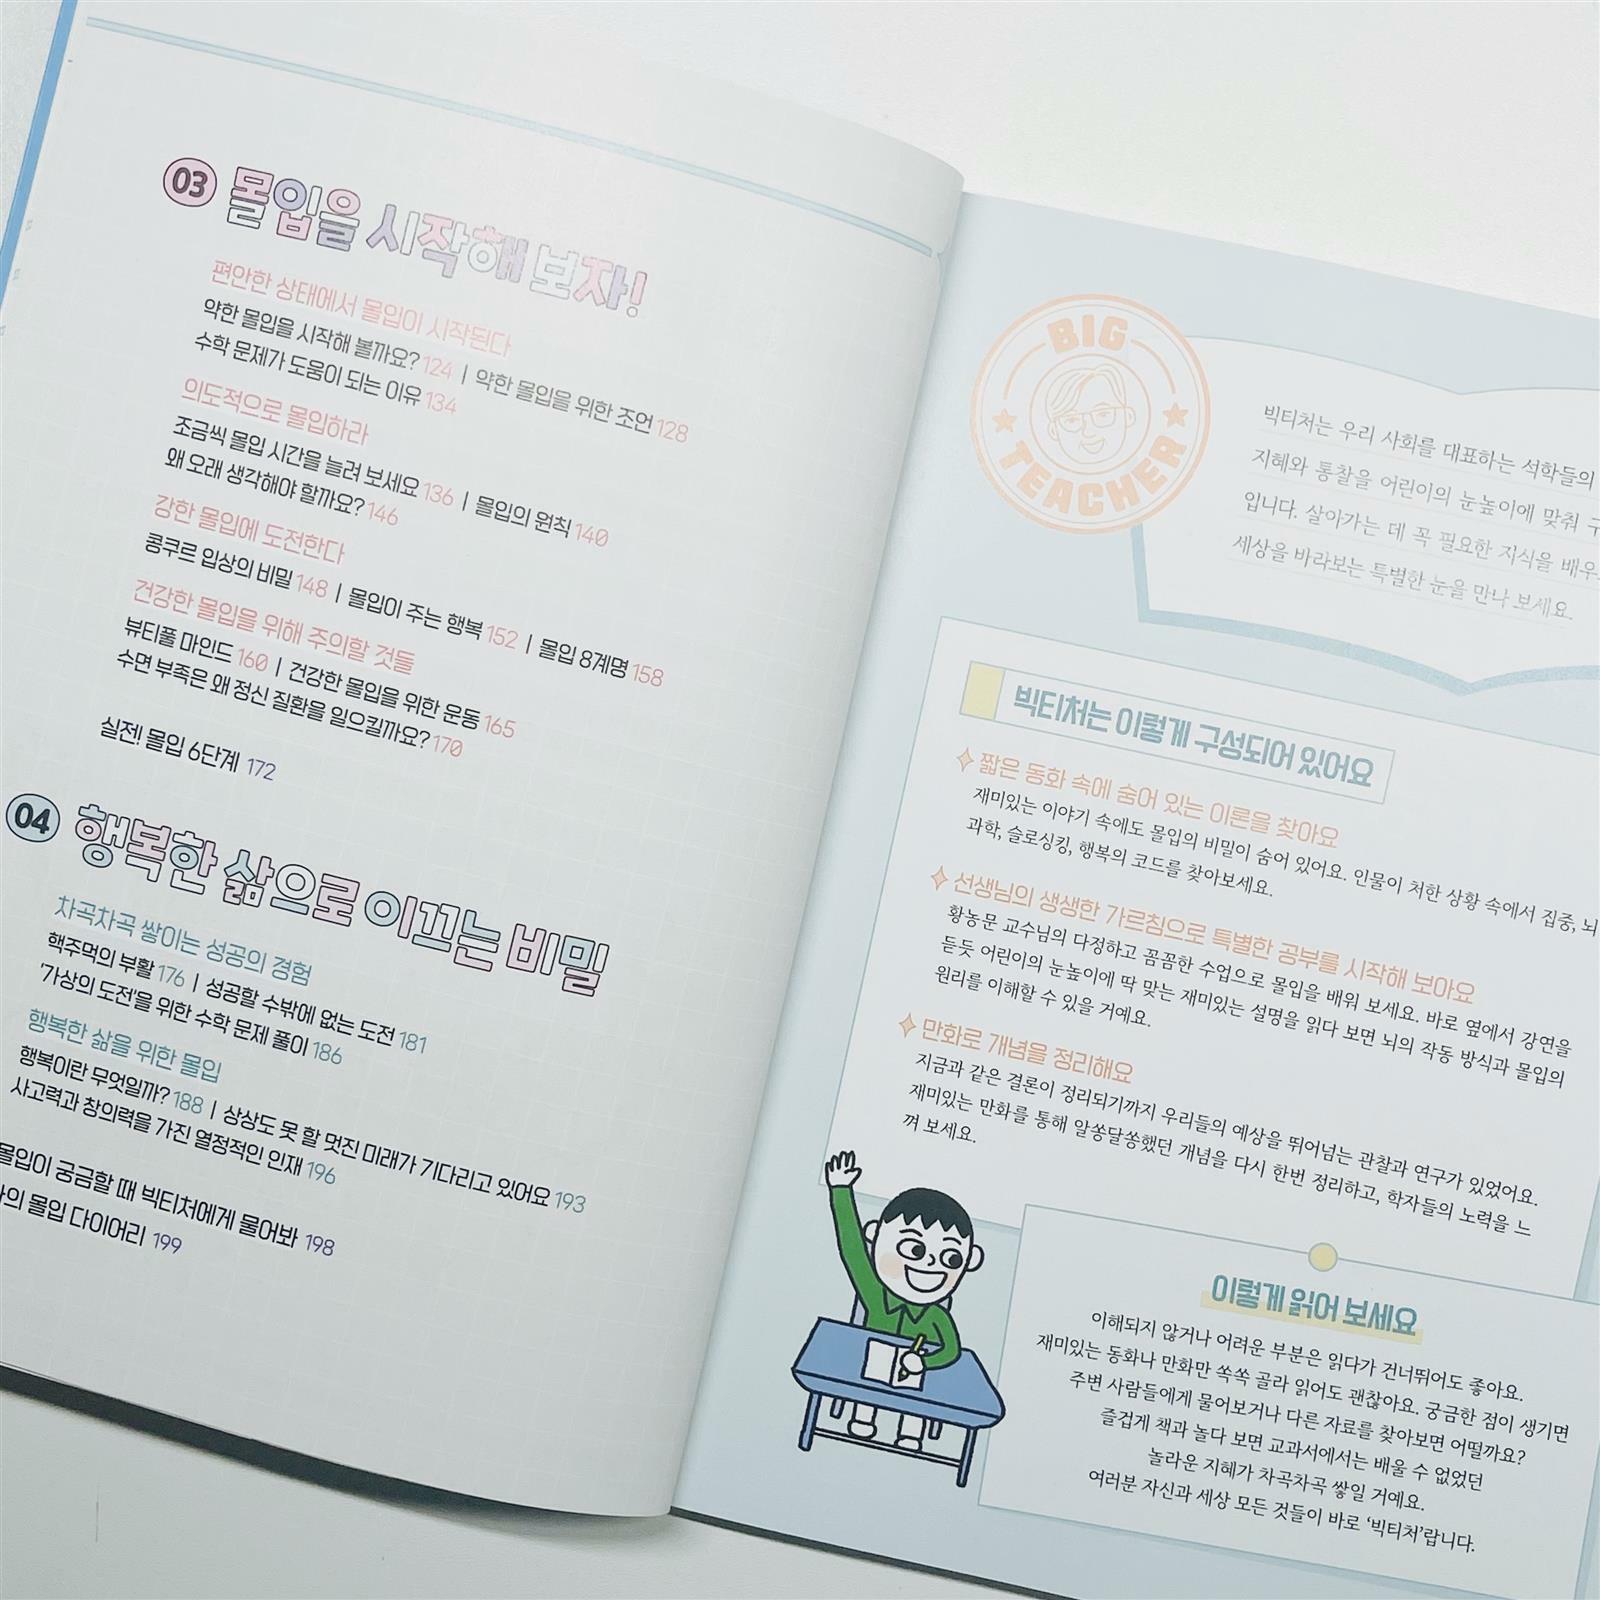 03 몰입을 시작해 보자!
편안한 상태에서 몰입이 시작된다
약한 몰입을 시작해 볼까요? 124 | 약한 몰입을 위한 조언 128
수학 문제가 도움이 되는 이유 134
의도적으로 몰입하라
조금씩 몰입 시간을 늘려 보세요 136 | 몰입의 원칙 140
왜 오래 생각해야 할까요? 146
강한 몰입에 도전한다
콩쿠르 입상의 비밀 148 | 몰입이 주는 행복 152 | 몰입 8계명 158
건강한 몰입을 위해 주의할 것들
뷰티풀 마인드 160 | 건강한 몰입을 위한 운동 165
수면 부족은 왜 정신 질환을 일으킬까요? 170
실전! 몰입 6단계 172
04 행복한 삶으로 이끄는 비밀
차곡차곡 쌓이는 성공의 경험
핵주먹의 부활 176 | 성공할 수밖에 없는 도전 181
'가상의 도전'을 위한 수학 문제 풀이 186
행복한 삶을 위한 몰입
행복이란 무엇일까? 188 | 상상도 못 할 멋진 미래가 기다리고 있어요 193
사고력과 창의력을 가진 열정적인 인재 196
몰입이 궁금할 때 빅티처에게 물어봐 198
몰입 다이어리 199
BIG
TEACHER
빅티처는 우리 사회를 대표하는 석학들의
지혜와 통찰을 어린이의 눈높이에 맞춰
입니다. 살아가는 데 꼭 필요한 지식을
세상을 바라보는 특별한 눈을 만나 보세요.
빅티처는 이렇게 구성되어 있어요
짧은 동화 속에 숨어 있는 이론을 찾아요
재미있는 이야기 속에도 몰입의 비밀이 숨어 있어요. 인물이 처한 상황 속에서 집중, 뇌
과학, 슬로싱킹, 행복의 코드를 찾아보세요.
선생님의 생생한 가르침으로 특별한 공부를 시작해 보아요
황농문 교수님의 다정하고 꼼꼼한 수업으로 몰입을 배워 보세요. 바로 옆에서 강연을
듣듯 어린이의 눈높이에 딱 맞는 재미있는 설명을 읽다 보면 뇌의 작동 방식과 몰입의
원리를 이해할 수 있을 거예요.
만화로 개념을 정리해요
지금과 같은 결론이 정리되기까지 우리들의 예상을 뛰어넘는 관찰과 연구가 있었어요.
재미있는 만화를 통해 알쏭달쏭했던 개념을 다시 한번 정리하고, 학자들의 노력을 느
껴 보세요.
이렇게 읽어 보세요
이해되지 않거나 어려운 부분은 읽다가 건너뛰어도 좋아요.
재미있는 동화나 만화만 쏙쏙 골라 읽어도 괜찮아요. 궁금한 점이 생기면
주변 사람들에게 물어보거나 다른 자료를 찾아보면 어떨까요?
즐겁게 책과 놀다 보면 교과서에서는 배울 수 없었던
놀라운 지혜가 차곡차곡 쌓일 거예요.
여러분 자신과 세상 모든 것들이 바로 '빅티처'랍니다.